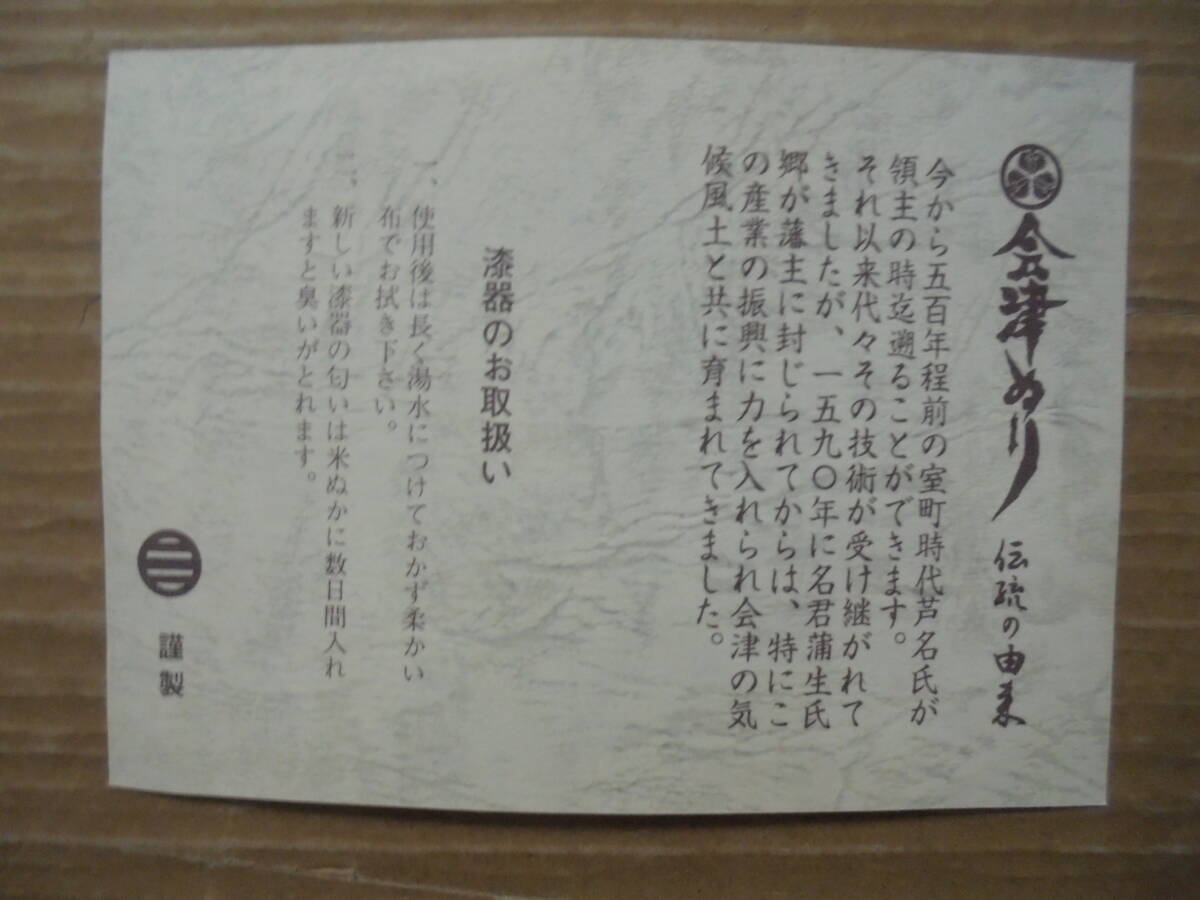 会津ぬり 伝統の由来
今から五百年程前の室町時代芦名氏が
領主の時迄遡ることができます。
それ以来代々その技術が受け継がれて
きましたが、一五九〇年に名君蒲生氏
郷が藩主に封じられてからは、特にこ
の産業の振興に力を入れられ会津の気
候風土と共に育まれてきました。
漆器のお取扱い
一、使用後は長く湯水につけておかず柔かい
布でお拭き下さい。
二、新しい漆器の匂いは米ぬかに数日間入れ
ますと臭いがとれます。
謹製